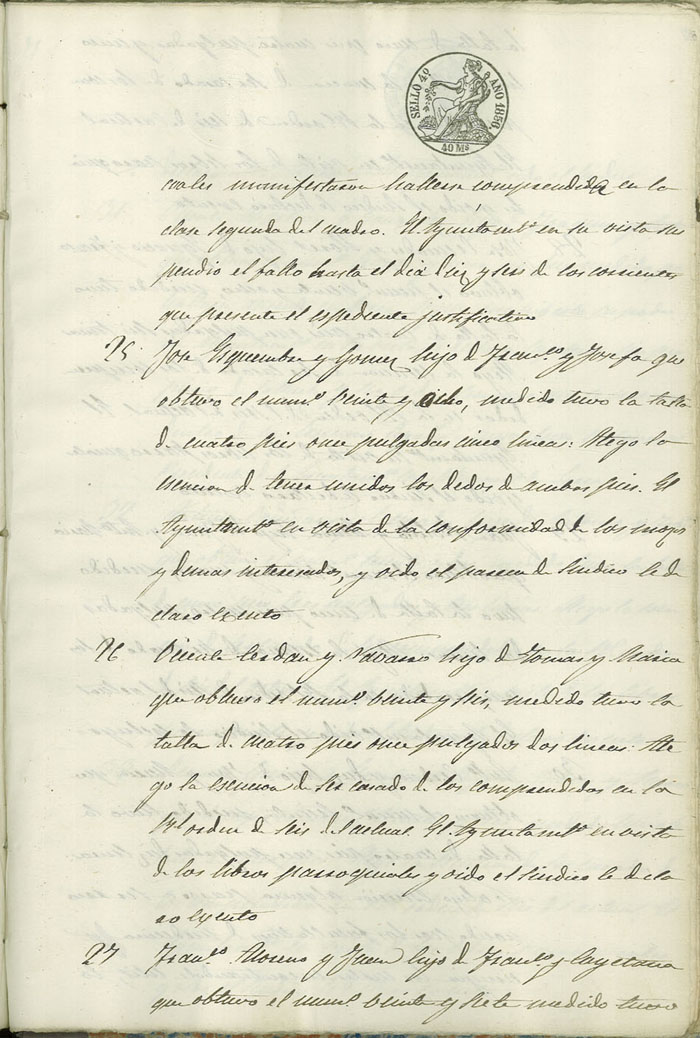 SELLO 4º AÑO 1850.
40 Ms
cuales manifestaron hallerse comprendida en la
clase segunda del cuadro. El Ayuntamtº en su vista sus
pendio el fallo hasta el dia diez y seis de los corrientes
que presente el espediente justificativo
25 Jose Esquembre y Gomez hijo de Franco y Josefa que
obtuvo el numº Veinte y Ocho, medido tuvo la talla
de cuatro pies once pulgadas cinco lineas: Alego la
esencion de tener unidos los dedos de ambos pies. El
Ayuntamtº en vista de la conformidad de los mozos
y demas interesados, y oido el parecer de Sindico le de
claro Exento
26 Vicente Cerdan y Navarro hijo de Tomas y Maria
que obtuvo el numº veinte y seis, medido tuvo la
talla de cuatro pies once pulgadas dos lineas: Ale
go la esencion de ser casado de los comprendidos en la
Rl orden de seis del actual. El Ayuntamtº en vista
de los libros parroquiales y oido el Sindico le decla
ro exento
27 Franco Moreno y Juan hijo de Franco y Cayetana
que obtuvo el numº veinte y siete medido tuvo